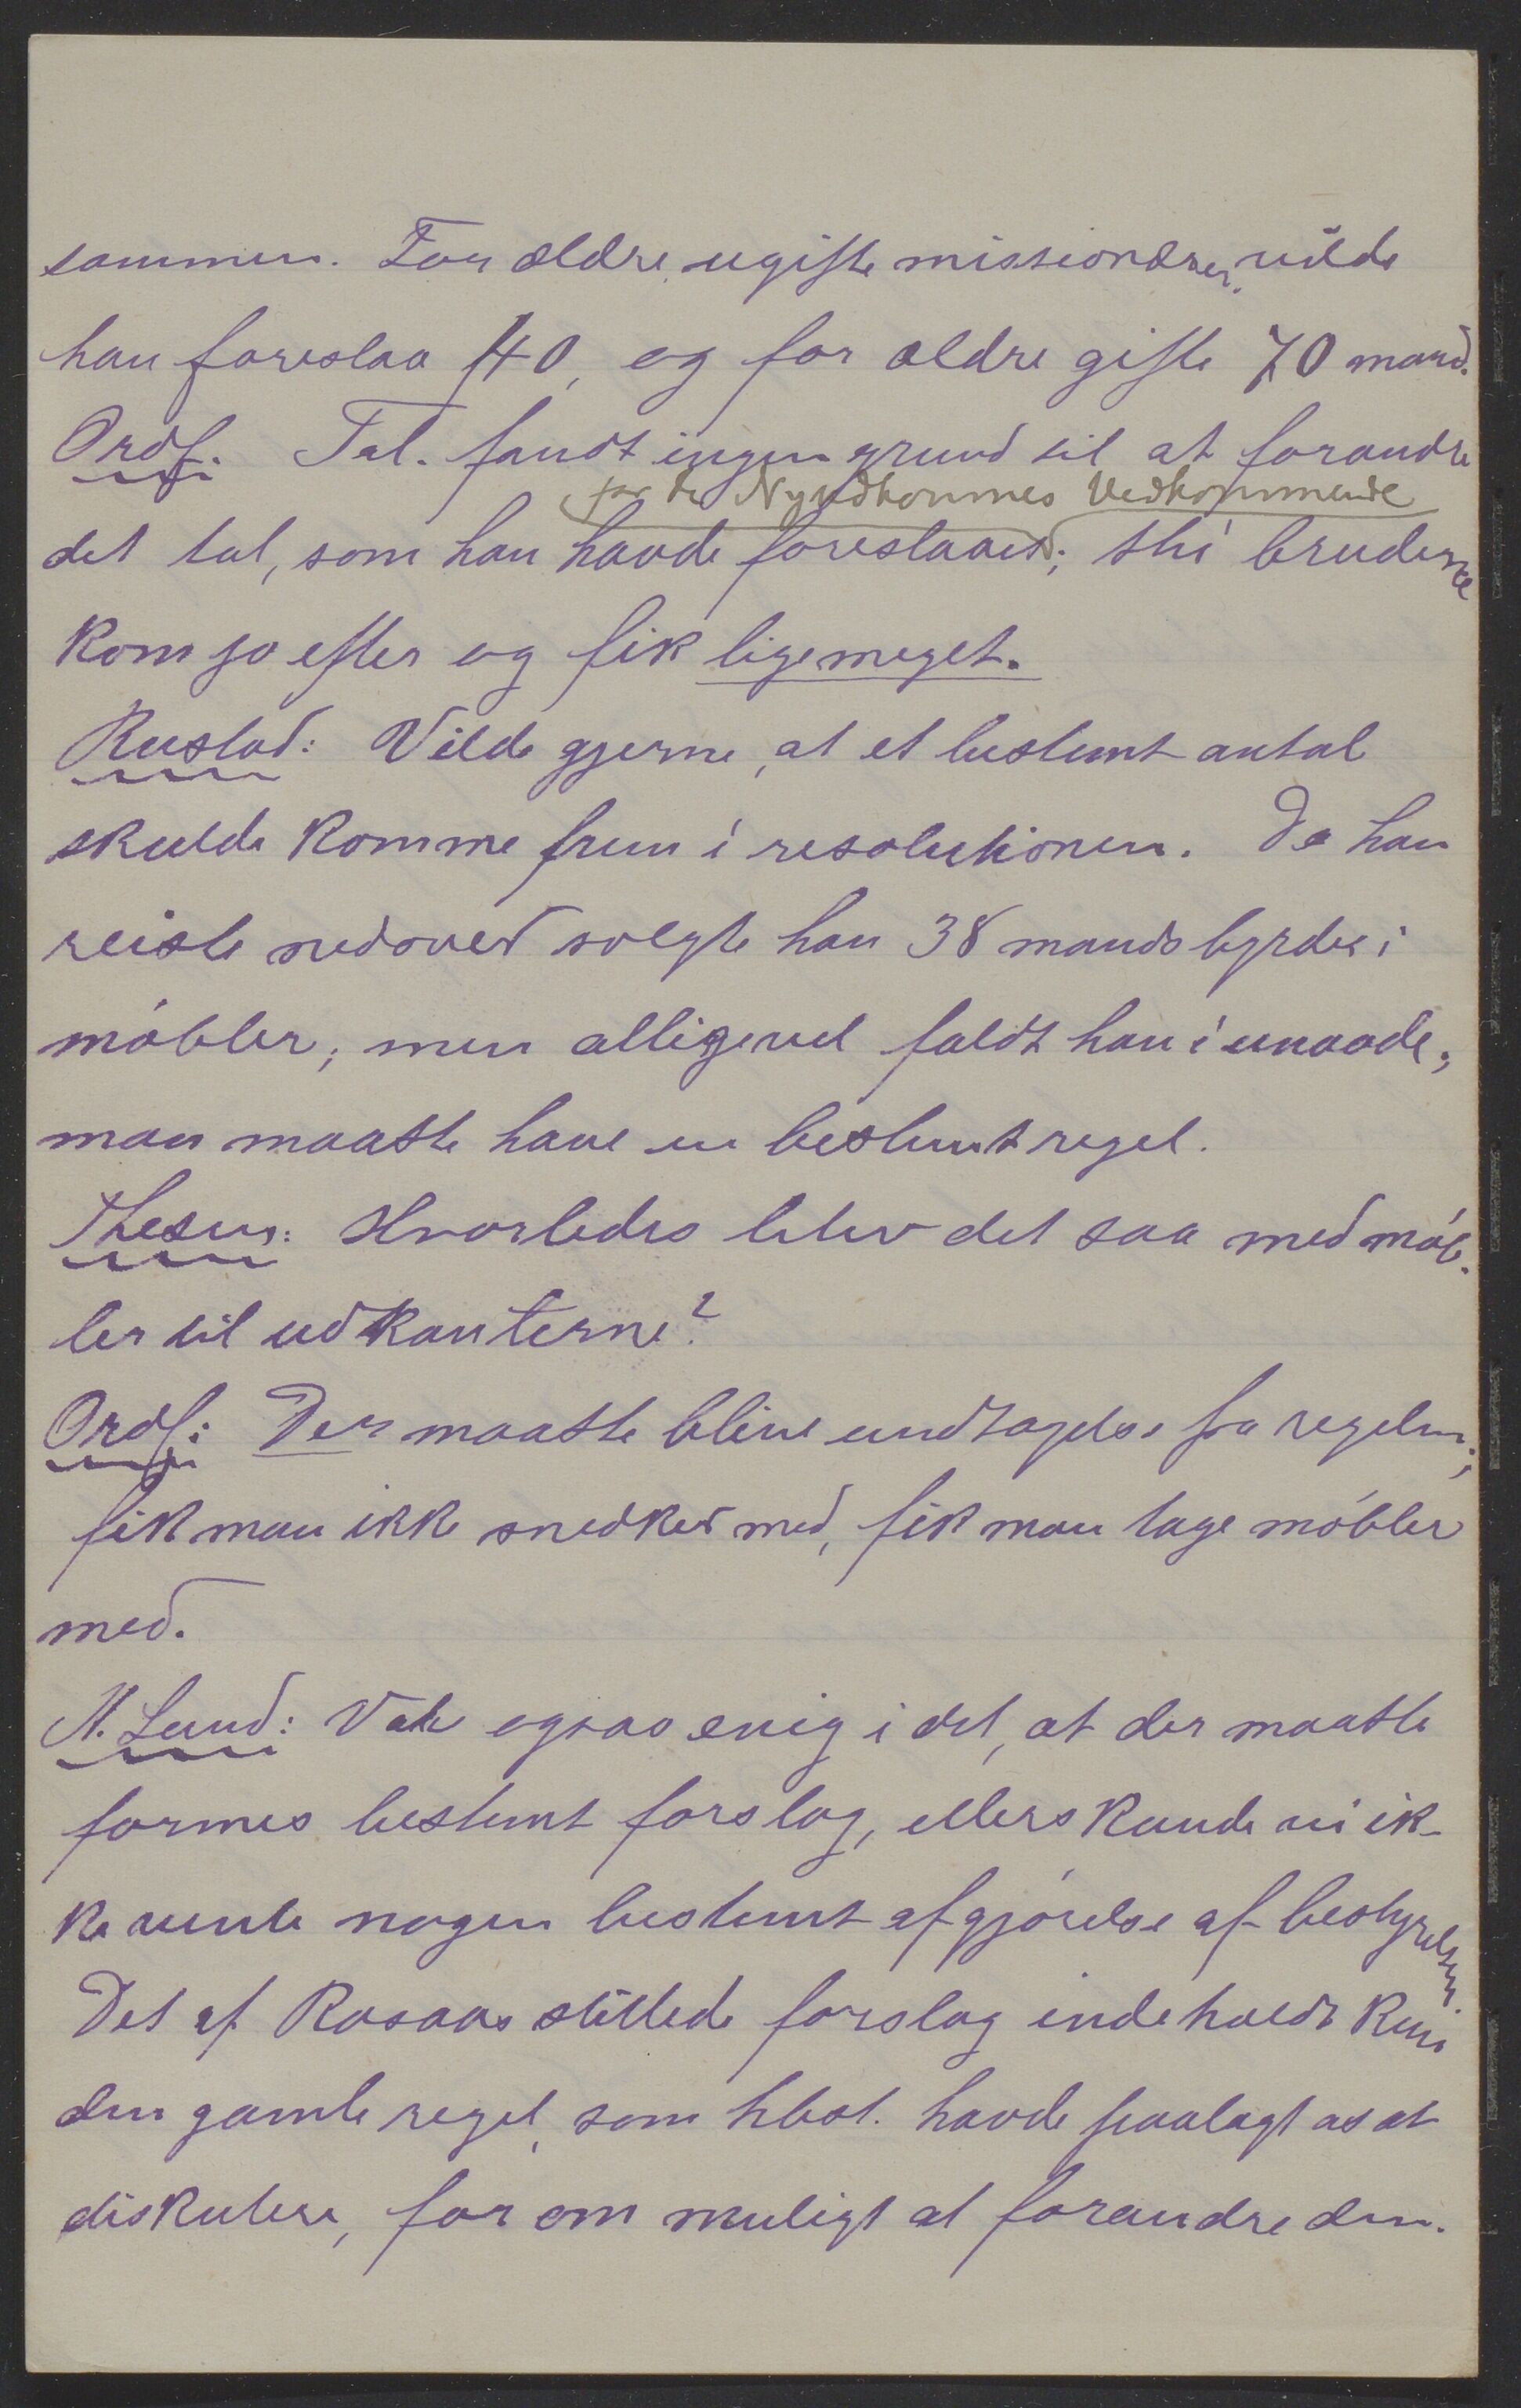 sammen. For ældre ugifte missionærer vilde
han foreslaa 40, og for ældre gifte 70 mand.
Ordf. Tal. fandt ingen grund til at forandre
for de Nyudkomnes Vedkommende
det tal, som han havde foreslaaet; thi bruderne
kom jo efter og fik ligemeget.
Rustad: Vilde gjerne, at et bestemt antal
skulde komme frem i resolutionen. Da han
reiste nedover solgte han 38 mands byrder i
møbler; men alligevel faldt han i unaade;
man maatte have en bestemt regel.
Thesen: Hvorledes blev det saa med møb-
ler til udkanterne?
Ordf: Der maatte blive undtagelse fra regelen;
fik man ikke snedker med, fik man tage møbler
med.
N. Lund: Var ogsaa enig i det, at der maatte
formes bestemt forslag, ellers kunde vi ik-
ke vente nogen bestemt afgjørelse af bestyrelsen.
Det af Rosaas stillede forslag indeholdt kun
den gamle regel, som hbst. havde paalagt os at
diskutere, for om muligt at forandre den.